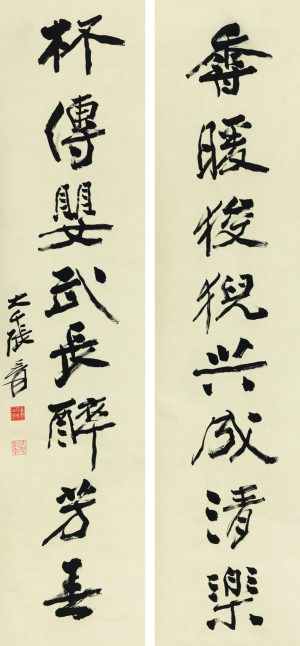 香暖狻猊共成清樂
杯傳嬰武長醉芳春
大千張爰